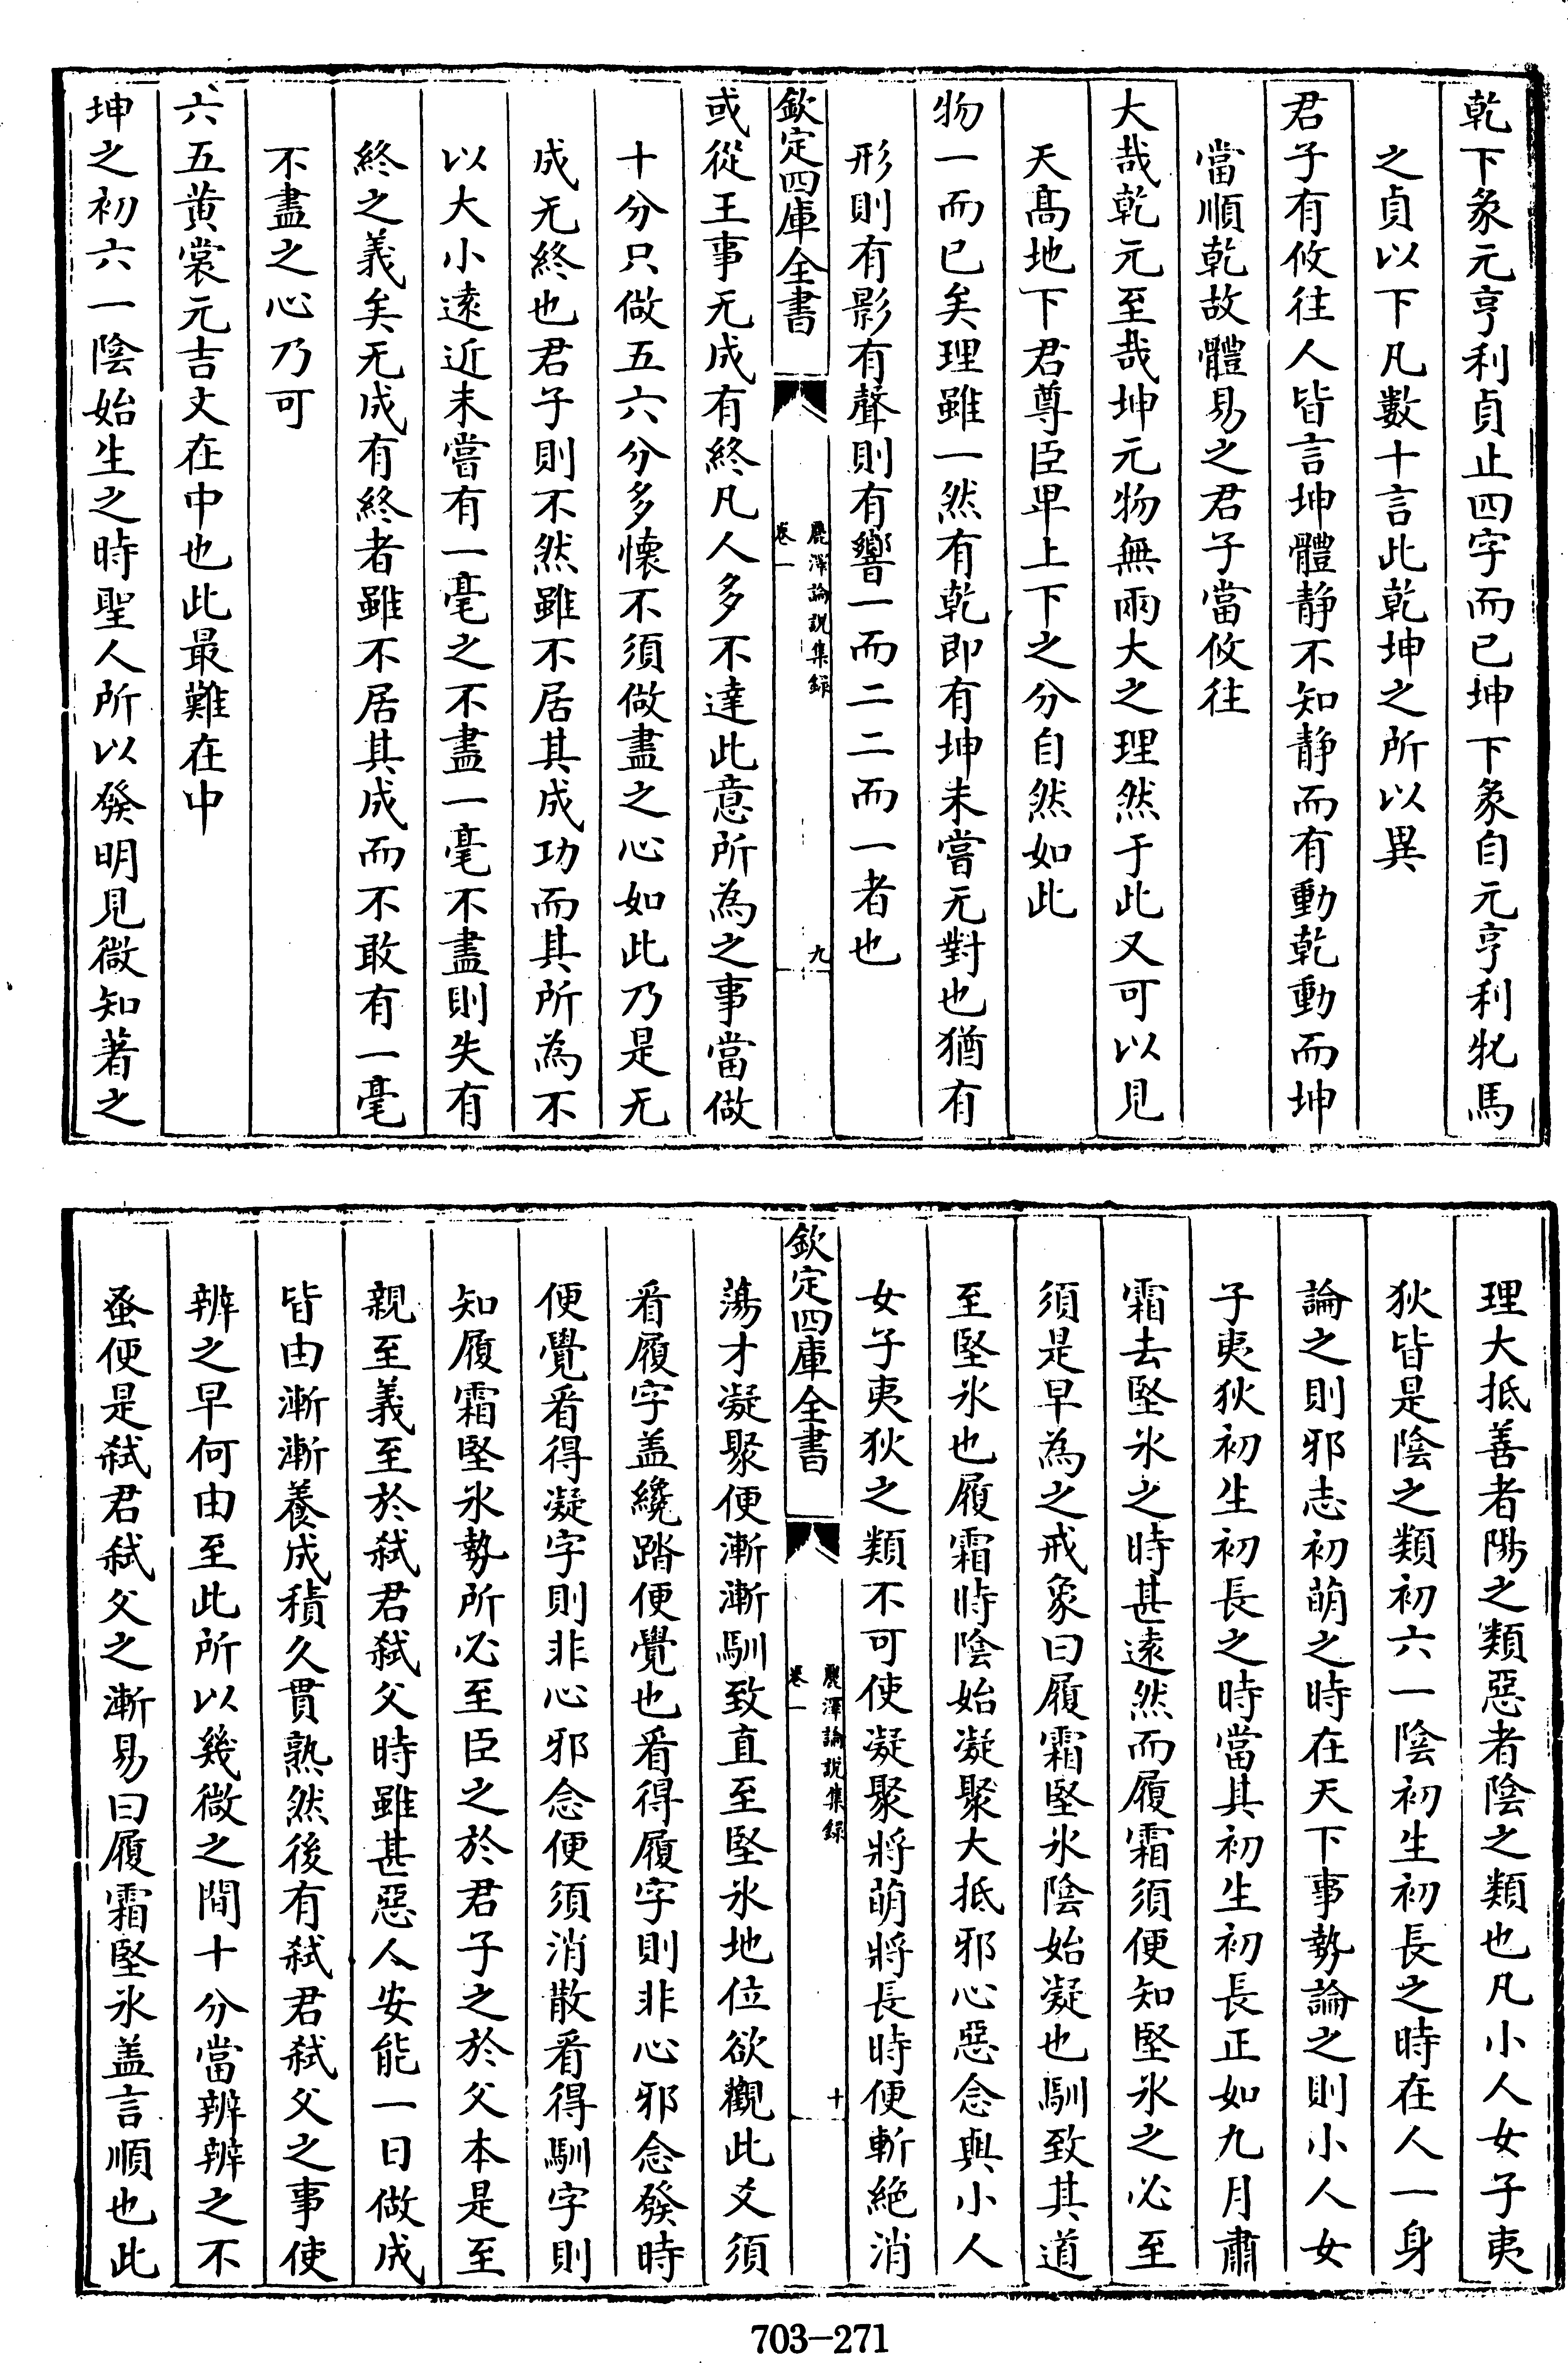 乾下彖元亨利貞止四字而已坤下彖自元亨利牝馬
之貞以下凡數十言此乾坤之所以異
君子有攸往人皆言坤體静不知静而有動乾動而坤
當順乾故體易之君子當攸往
大哉乾元至哉坤元物無兩大之理然于此又可以見
天髙地下君尊臣卑上下之分自然如此
物一而已矣理雖一然有乾即有坤未嘗无對也猶有
形則有影有聲則有響一而二二而一者也
欽定四庫全書
麗澤論說集録
卷一
九
或從王事无成有終凡人多不達此意所為之事當做
十分只做五六分多懷不須做盡之心如此乃是无
成无終也君子則不然雖不居其成功而其所為不
以大小遠近未嘗有一毫之不盡一毫不盡則失有
終之義矣无成有終者雖不居其成而不敢有一毫
不盡之心乃可
六五黄裳元吉文在中也此最難在中
坤之初六一陰始生之時聖人所以發明見微知著之
理大抵善者陽之類惡者陰之類也凡小人女子夷
狄皆是陰之類初六一陰初生初長之時在人一身
論之則邪志初萌之時在天下事勢論之則小人女
子夷狄初生初長之時當其初生初長正如九月肅
霜去堅氷之時甚遠然而履霜須便知堅氷之必至
須是早為之戒象曰履霜堅氷陰始凝也馴致其道
至堅氷也履霜時陰始凝聚大抵邪心惡念與小人
女子夷狄之類不可使凝聚將萌將長時便斬絶消
欽定四庫全書
麗澤論說集録
卷一
十
蕩才凝聚便漸漸馴致直至堅氷地位欲觀此爻須
看履字盖纔踏便覺也看得履字則非心邪念發時
便覺看得凝字則非心邪念便須消散看得馴字則
知履霜堅氷勢所必至臣之於君子之於父本是至
親至義至於弑君弑父時雖甚惡人安能一日做成
皆由漸漸養成積久貫熟然後有弑君弑父之事使
辨之早何由至此所以幾微之間十分當辨辨之不
蚤便是弑君弑父之漸易曰履霜堅氷盖言順也此
703-271